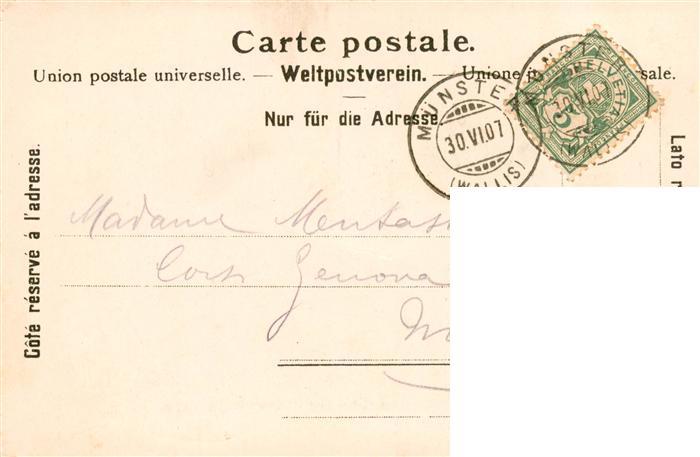 Carte postale.
Union postale universelle. — Weltpostverein. — Unione sale.
Nur für die Adresse.
Côté réservé à l'adresse.
Lato
MÜNSTE
30.VI.07
(WALLIS)
HELVETIA
5
30.VI.07
Madame
Corso Genova